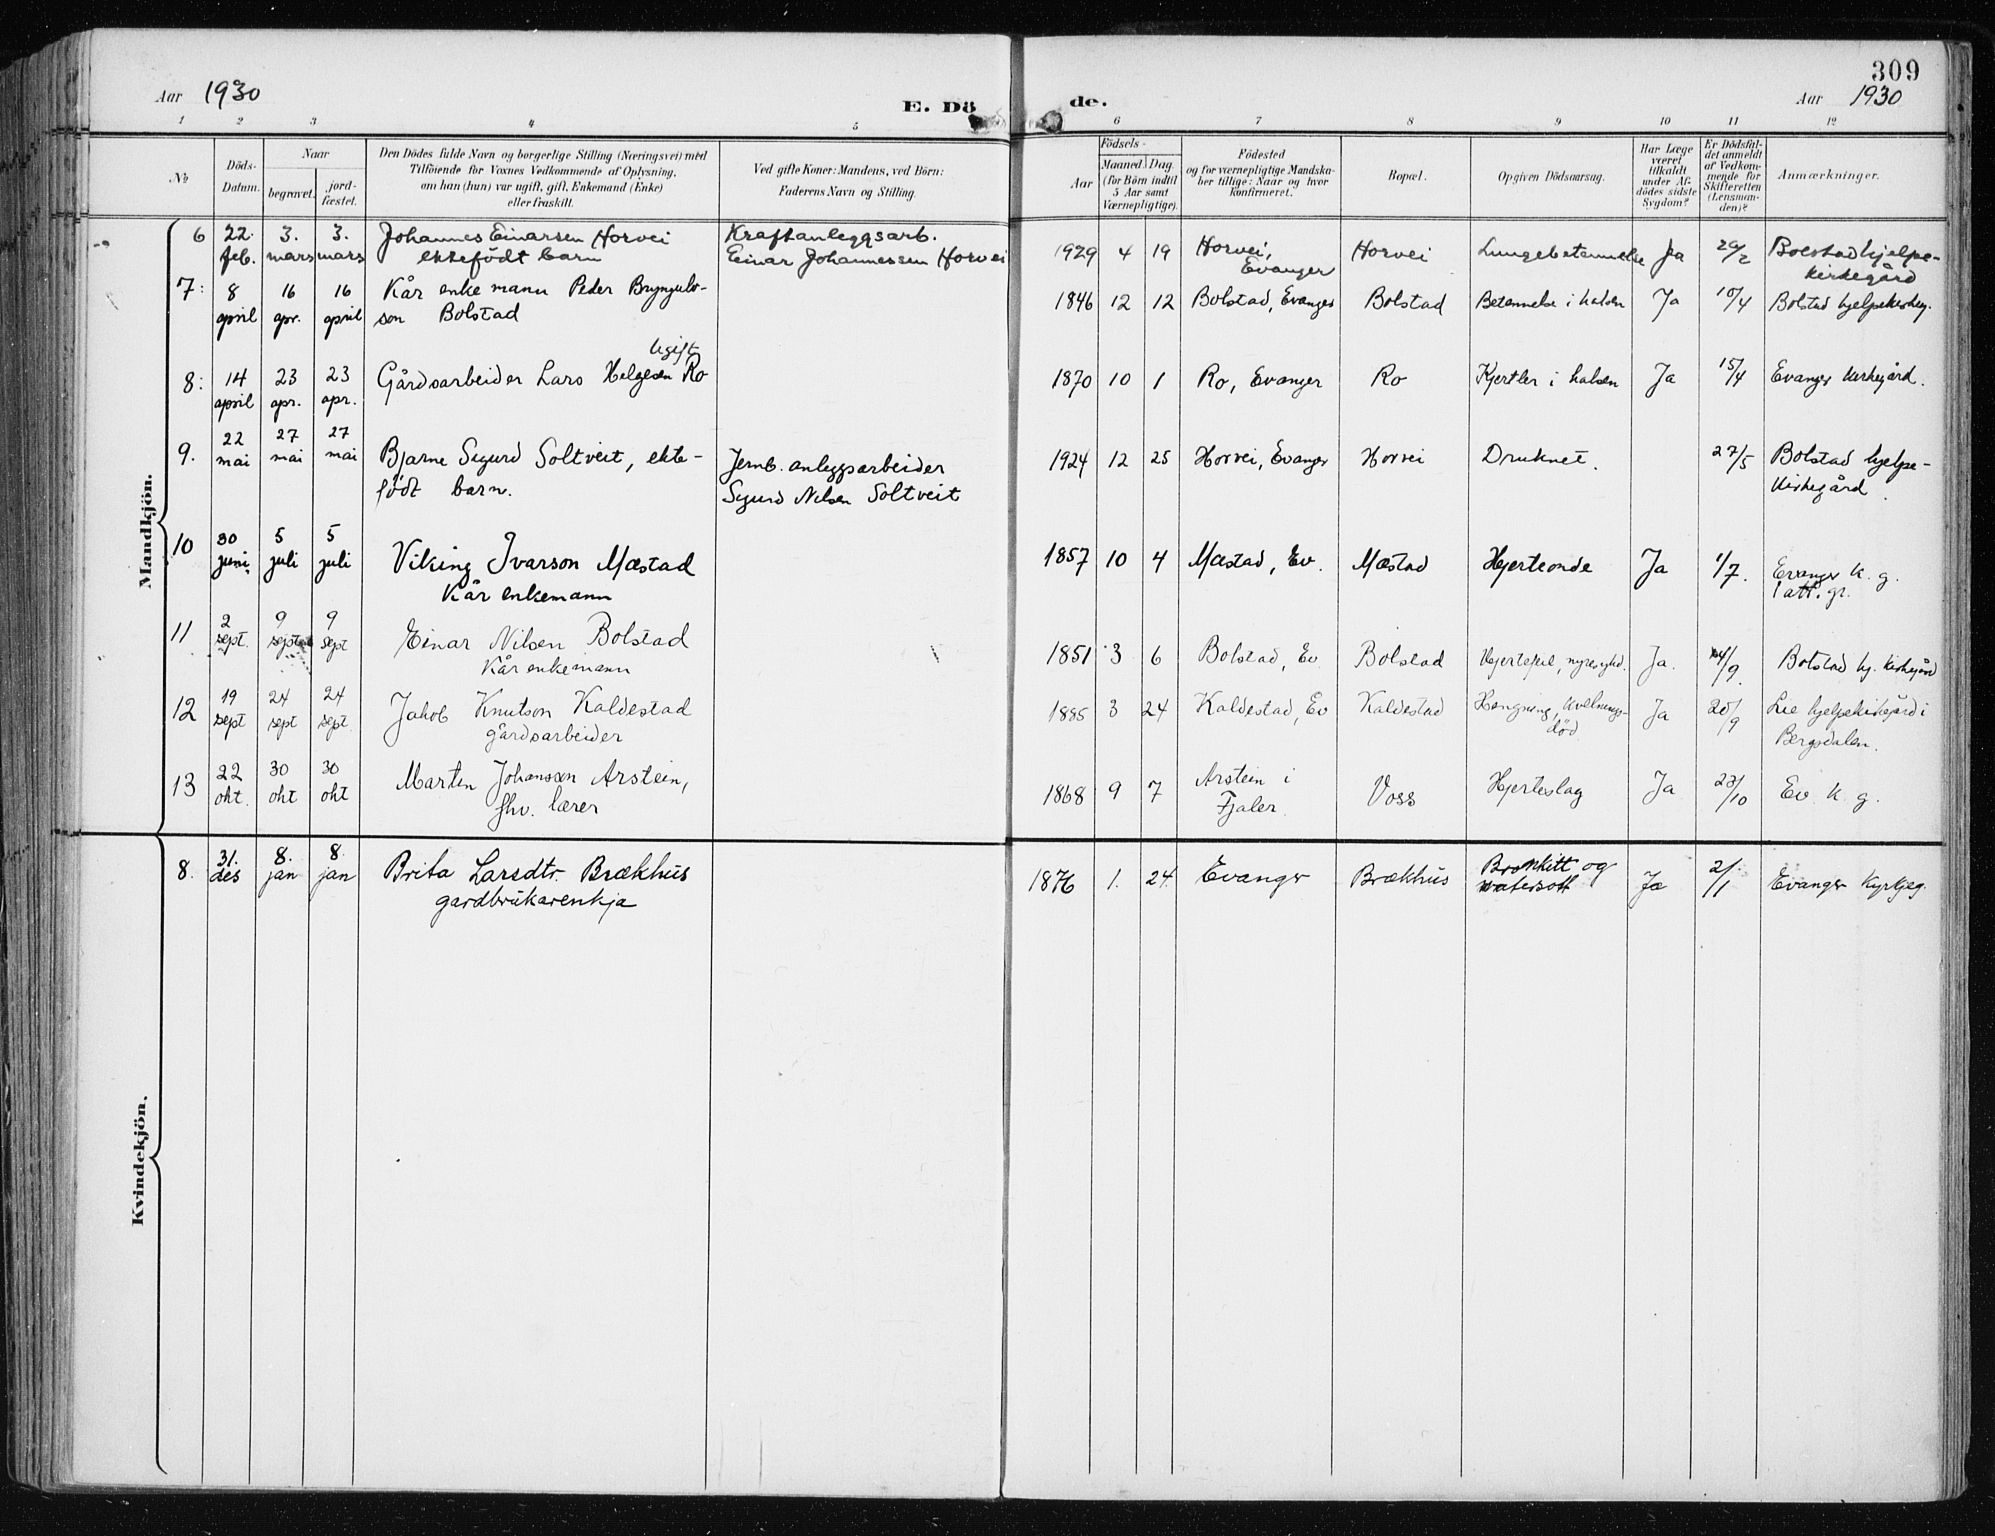 309
Aar 1930
E. Dö de.
Aar 1930
1 2 3 4 5 6 7 8 9 10 11 12
No
Döds-
Datum.
Naar
begravet.
jord-
fæstet.
Den Dödes fulde Navn og borgerlige Stilling (Næringsvei) med
Tilföiende for Voxnes Vedkommende af Oplysning,
om han (hun) var ugift, gift, Enkemand (Enke)
eller fraskilt.
Ved gifte Koner: Mandens, ved Börn:
Faderens Navn og Stilling.
Födsels-
Aar
Maaned. Dag.
(for Börn indtil
5 Aar samt
Værnepligtige).
Födested
og for værnepligtige Mandska-
ber tillige: Naar og hvor
konfirmeret.
Bopæl.
Opgiven Dödsaarsag.
Har Læge
været
tilkaldt
under Af-
dödes sidste
Sygdom?
Er Dödsfal-
det anmeldt
af Vedkom-
mende for
Skifteretten
(Lensman-
den)?
Anmærkninger.
Mandkjön.
6 22. 3. 3. Johannes Einarsen Horvei Kraftanleggsarb. 1929 4 19 Horvei, Horvei Lungebetennelse Ja Bolstad hjelpe-
feb. mars mars ektefödt barn Einar Johannessen Horvei Evanger kirkegård
7: 8 16 16 Kår enke mann Peder Bryngulv- 1846 12 12 Bolstad, Evanger Bolstad Betennelse i halsen Ja 10/4 Bolstad hjelpekirkeg.
april apr. april son Bolstad
Ugift
8: 14 23 23 Gårdsarbeider Lars Helgesen Ro 1870 10 1 Ro, Evanger Ro Kjertler i halsen Ja 15/4 Evanger kirkegård.
april apr. apr.
9. 22 27 27 Bjarne Sigurd Soltveit, ekte- Jernb. anleggsarbeider 1924 12 25 Horvei, Evanger Horvei Druknet. 27/5 Bolstad hjelpe-
mai mai mai födt barn. Sigurd Nilsen Soltveit kirkegård.
10 30 5 5 Viking Ivarson Mæstad 1857 10 4 Mæstad, Ev. Mæstad Hjerteonde Ja 1/7. Evanger k. g.
juni. juli juli Kår enkemann 1 att. gr.
11 2 9 9 Einar Nilsen Bolstad 1851 3 6 Bolstad, Ev Bolstad Hjertefeil, nyresykd. Ja. 4/9. Bolstad hj. kirkegård
sept. sept sept Kår enkemann
12 19 24 24 Jakob Knutson Kaldestad 1885 3 24 Kaldestad, Ev Kaldestad Hengning, kvelnings- Ja 20/9 Lie hjelpekirkegård i
sept sept sept. gårdsarbeider död Bergsdalen.
13 22 30 30 Marten Johansen Arstein, 1868 9 7 Arstein i Voss Hjerteslag Ja 23/10 Ev. k. g.
okt. okt okt fhv. lærer Fjaler.
Kvindekjön.
8. 31. 8. 8. Brita Larsdtr. Brækhus 1876 1. 24. Evanger Brækhus Bronkitt og Ja 2/1 Evanger Kyrkjeg.
des jan jan gardbrukarenkja vatersott